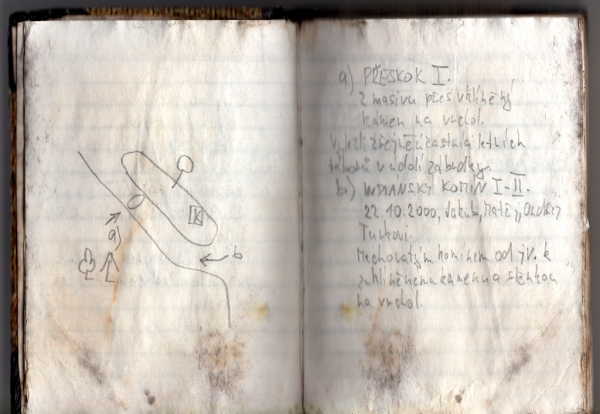 a)
K
b
a) PŘESKOK I.
Z masivu přes vklíněný
kámen na vrchol.
zřejmě účastníci letních
táborů v údolí
b) INDIÁNSKÝ KOMÍN I-II.
22.10.2000, Jakub, Matěj, Ondřej
Turkovi.
Mechovatým komínem od JV. k
zaklíněnému kamenu a stěnkou
na vrchol.